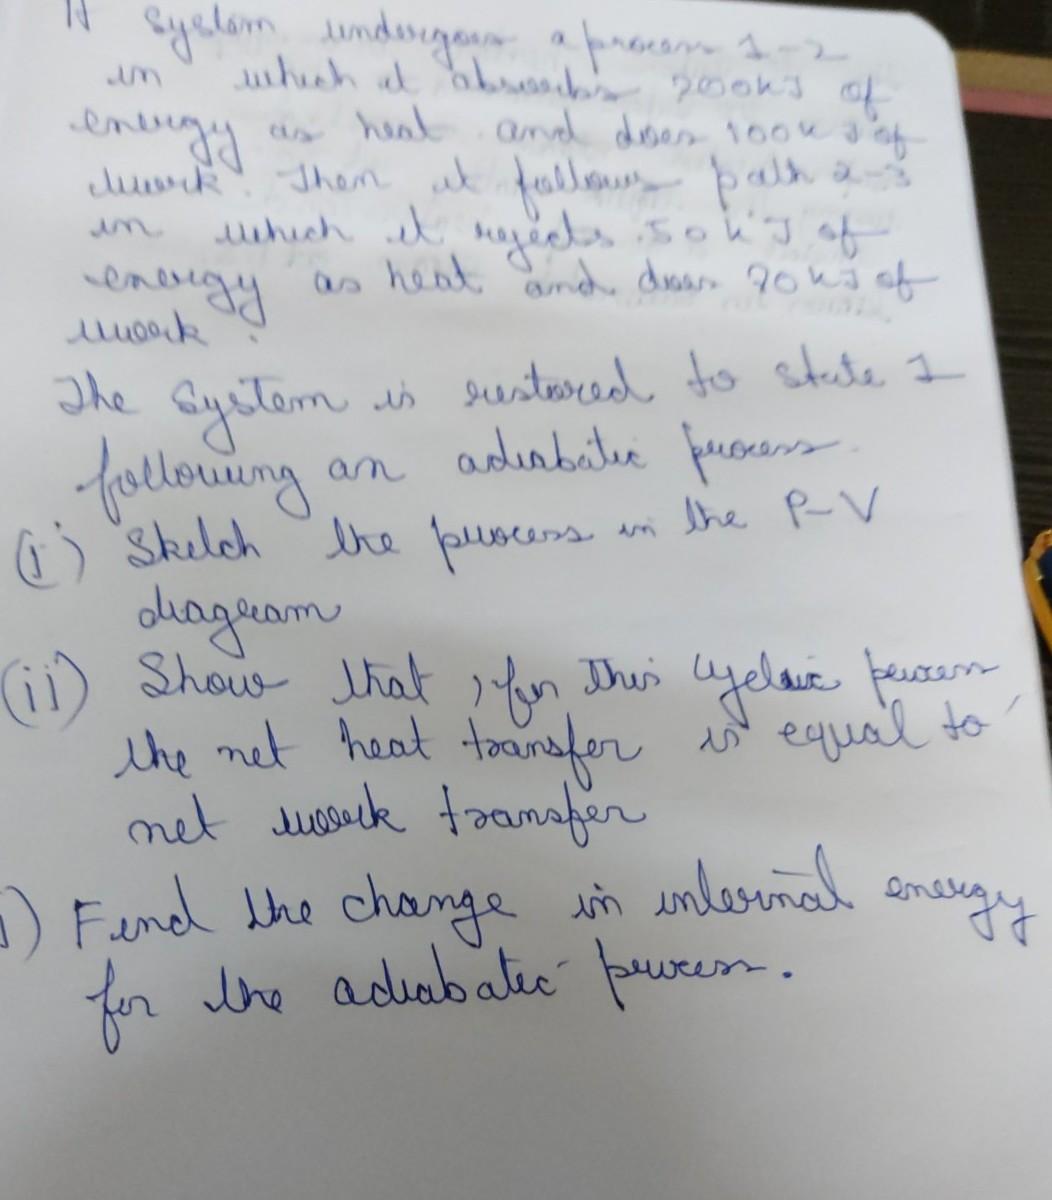 A system undergoes a process 1-2
in which it absorbs 200kJ of
energy as heat and does 100kJ of
work. Then it follows path 2-3
in which it rejects 50kJ of
energy as heat and does 70kJ of
work.
The System is restored to state 1
following an adiabatic process.
(i) Sketch the process in the P-V
diagram
(ii) Show that, for This cyclic process
the net heat transfer is equal to
net work transfer
) Find the change in internal energy
for the adiabatic process.